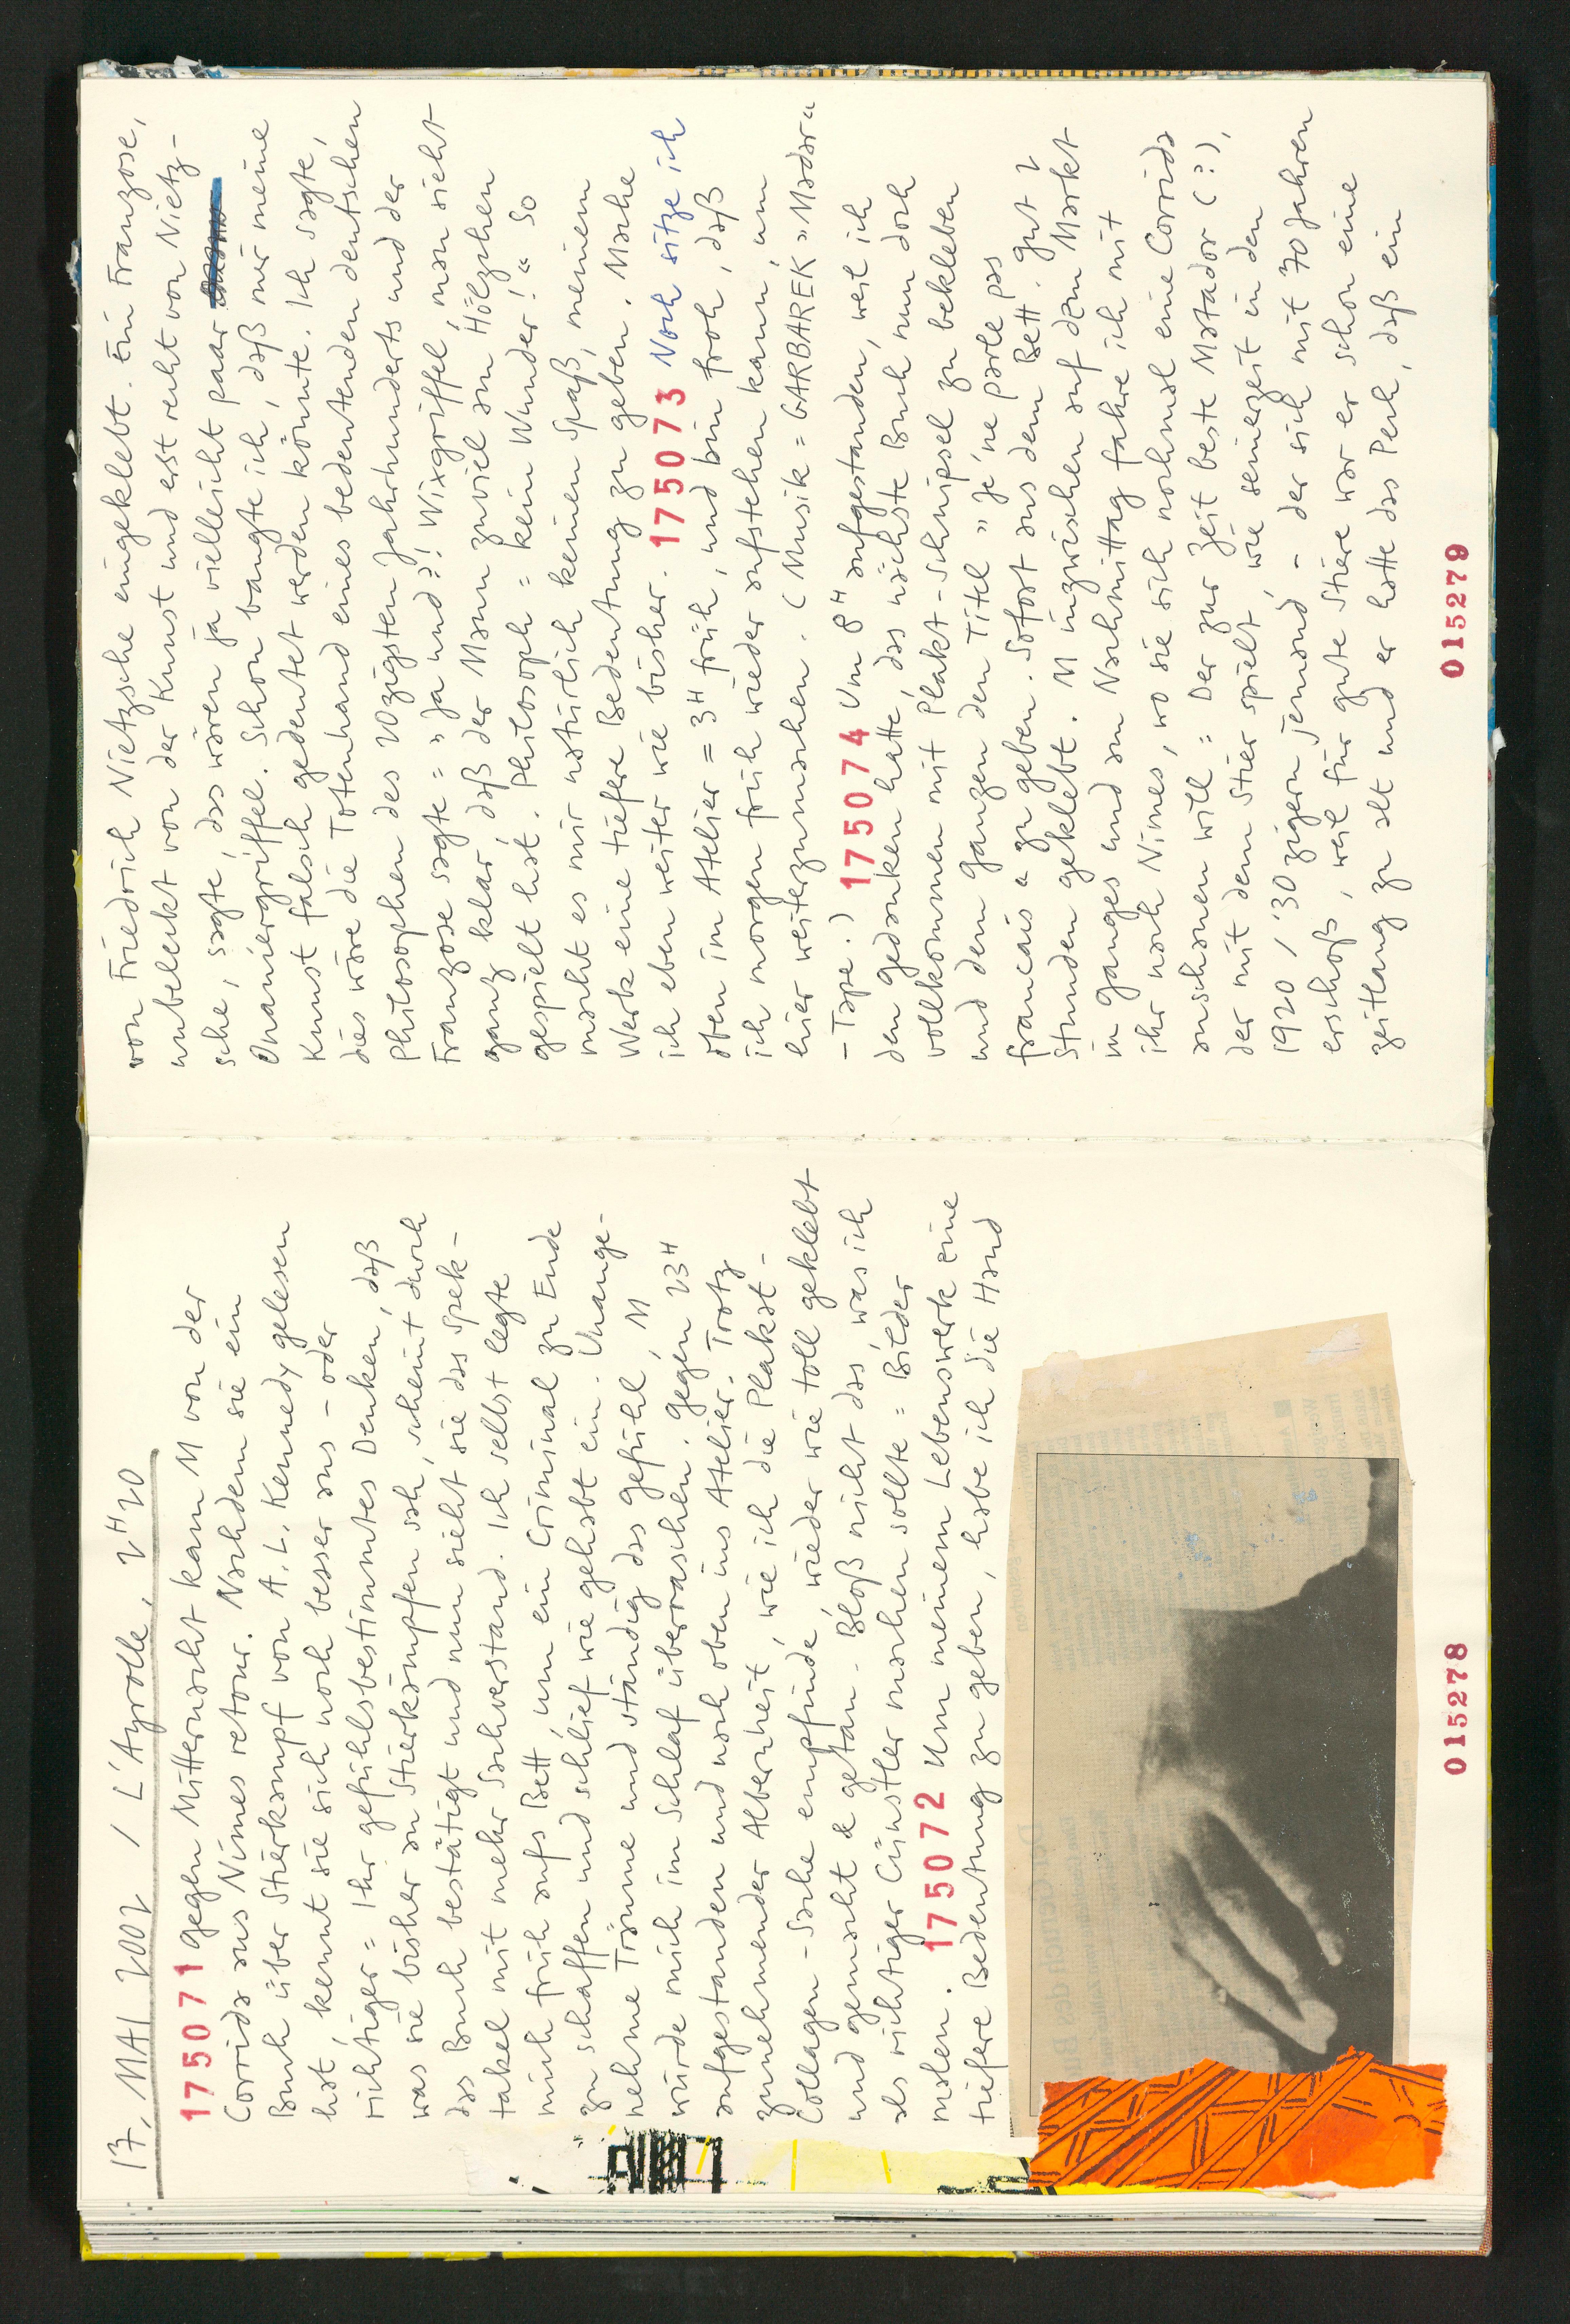 17. MAI 2002 / L'Ayrolle, 2H20
175071 gegen Mitternacht kam M von der
Corrida aus Nimes retour. Nachdem sie ein
Buch über Stierkampf von A. L. Kennedy gelesen
hat, kennt sie sich noch besser aus – oder
richtiger = Ihr gefühlsbestimmtes Denken, daß
was sie bisher an Stierkämpfen sah, scheint durch
das Buch bestätigt und nun sieht sie das Spek-
takel mit mehr Sachverstand. Ich selbst legte
mich früh aufs Bett, um ein Criminal zu Ende
zu schaffen und schlief wie gehabt ein. Unange-
nehme Träume und ständig das Gefühl, M
würde mich im Schlaf überraschen. Gegen 23H
aufgestanden und nach oben ins Atelier. Trotz
zunehmender Albernheit, wie ich die Plakat-
Collagen-Sache empfinde, wieder wie toll geklebt
und gemacht & getan. Bloß nicht das, was ich
als richtiger Cünstler machen sollte = Bilder
malen. 175072 Um meinem Lebenswerk eine
tiefere Bedeutung zu geben, habe ich die Hand
015278
von Friedrich Nietzsche eingeklebt. Ein Franzose,
unbeleckt von der Kunst und erst recht von Nietz-
sche, sagte, das wären ja vielleicht paar
Onaniergriffel. Schon bangte ich, daß mir meine
Kunst falsch gedeutet werden könnte. Ich sagte,
dies wäre die Totenhand eines bedeutenden deutschen
Philosophen des 20zigsten Jahrhunderts und der
Franzose sagte = "Ja und?! Wixgriffel, man sieht
ganz klar, daß der Mann zuviel am Hölzchen
gespielt hat. Philosoph = kein Wunder!" So
macht es mir natürlich keinen Spaß, meinem
Werk eine tiefere Bedeutung zu geben. Mache
ich eben weiter wie bisher. 175073 Noch sitze ich
oben im Atelier = 3H früh, und bin froh, daß
ich morgen früh wieder aufstehen kann, um
hier weiterzumachen. (Musik = GARBAREK "Madar"
-Tape.) 175074 Um 8H aufgestanden, weil ich
den Gedanken hatte, das nächste Buch nun doch
vollkommen mit Plakt-Schnipsel zu bekleben
und dem Ganzen den Titel "Je ne parle pas
francais" zu geben. Sofort aus dem Bett. Gut 2
Stunden geklebt. M inzwischen auf dem Markt
in Ganges und am Nachmittag fahre ich mit
ihr nach Nimes, wo sie sich nochmal eine Corrida
anschauen will = Der zur Zeit beste Matador (?),
der mit dem Stier spielt, wie seinerzeit in den
1920/'30zigern jemand, – der sich mit 70 Jahren
erschoß, weil für gute Stiere war er schon eine
zeitlang zu alt und er hatte das Pech, daß ein
015279